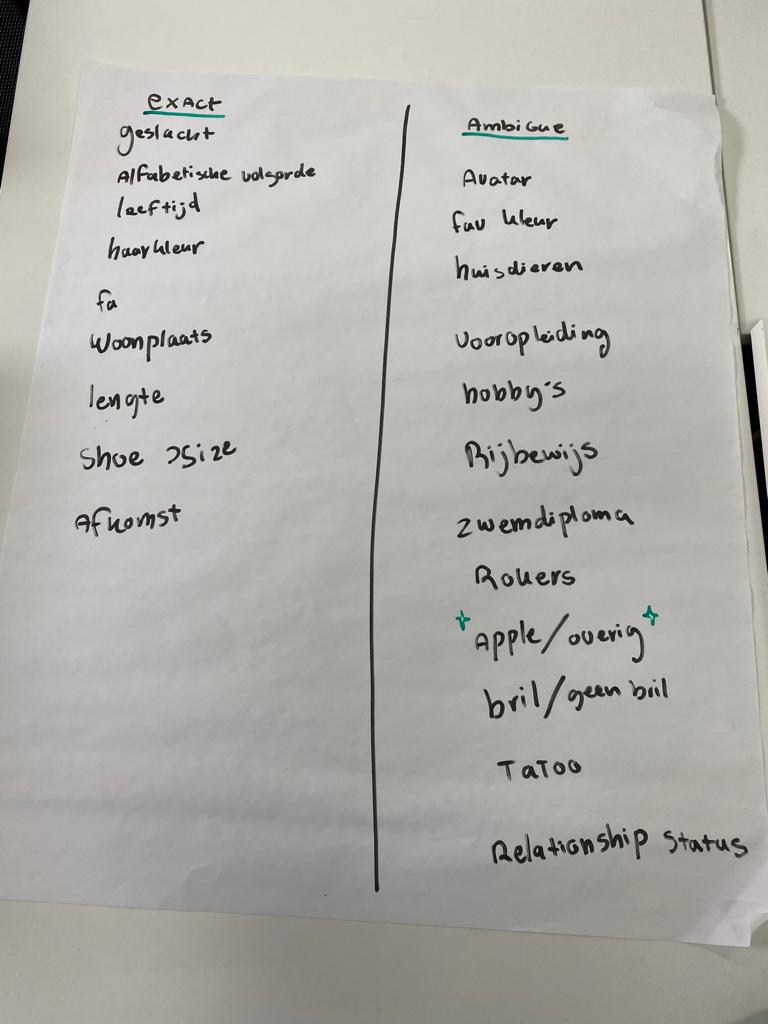 exact
geslacht
Alfabetische volgorde
leeftijd
haarkleur
fa
Woonplaats
lengte
Shoe size
Afkomst
Ambigue
Avatar
fav kleur
huisdieren
Vooropleiding
hobby's
Rijbewijs
Zwemdiploma
Rokers
Apple/overig
bril/geen bril
Tatoo
Relationship status